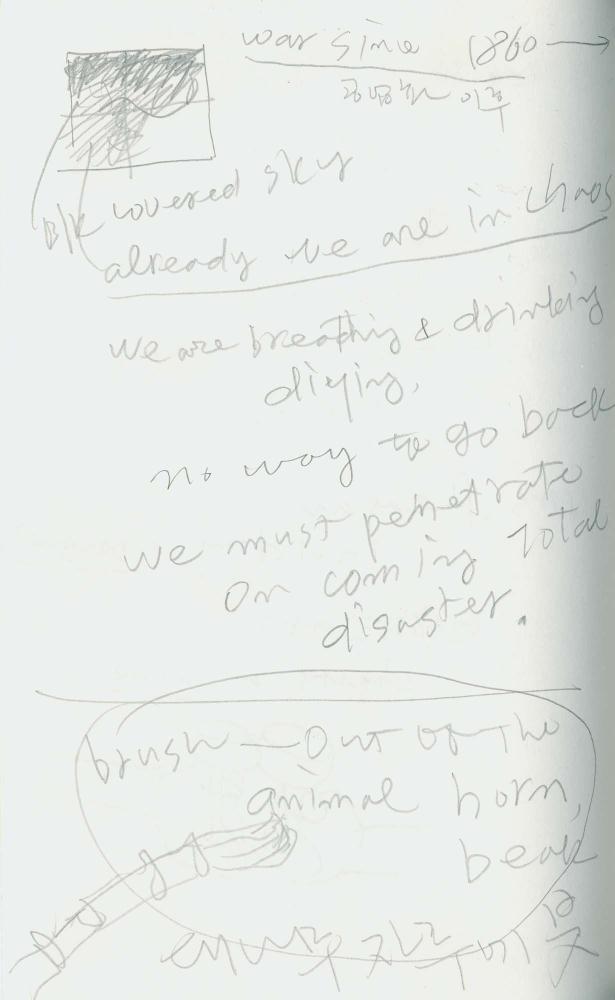 war since 1860 →
이후
Blk covered sky
already we are in chaos
we are breathing & drinking
diying,
no way to go back
we must penetrate
on coming total
disaster.
brush — out of the
animal horn,
beak